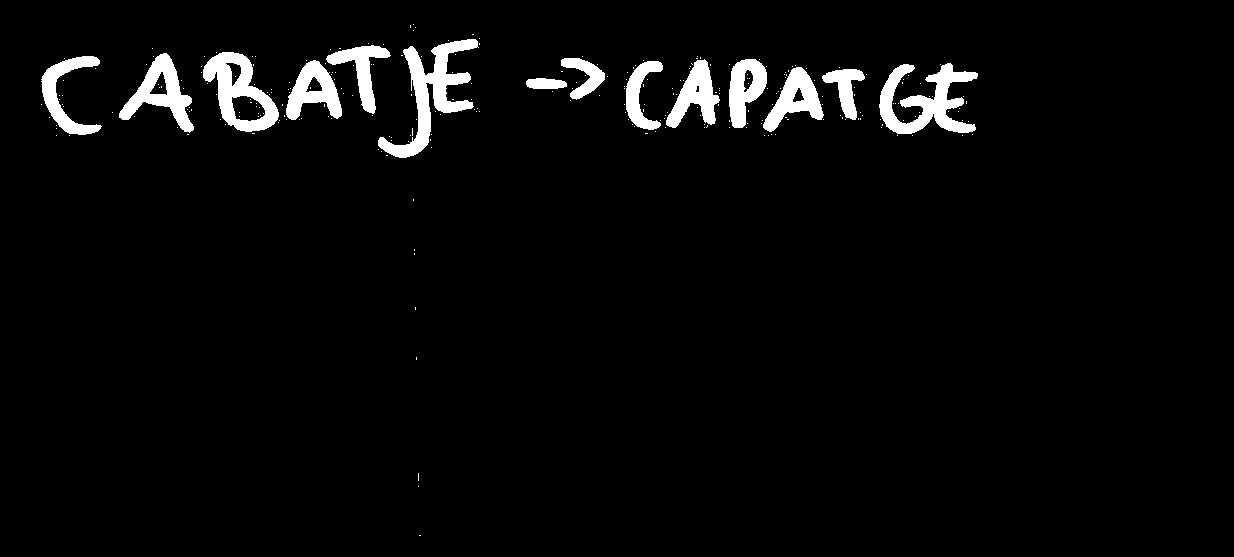 CABATJE -> CAPATGE